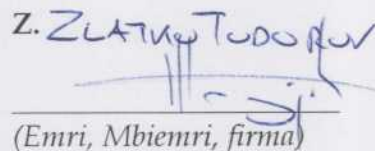 Z. ZLATKO TUDOROV
(Emri, Mbiemri, firma)